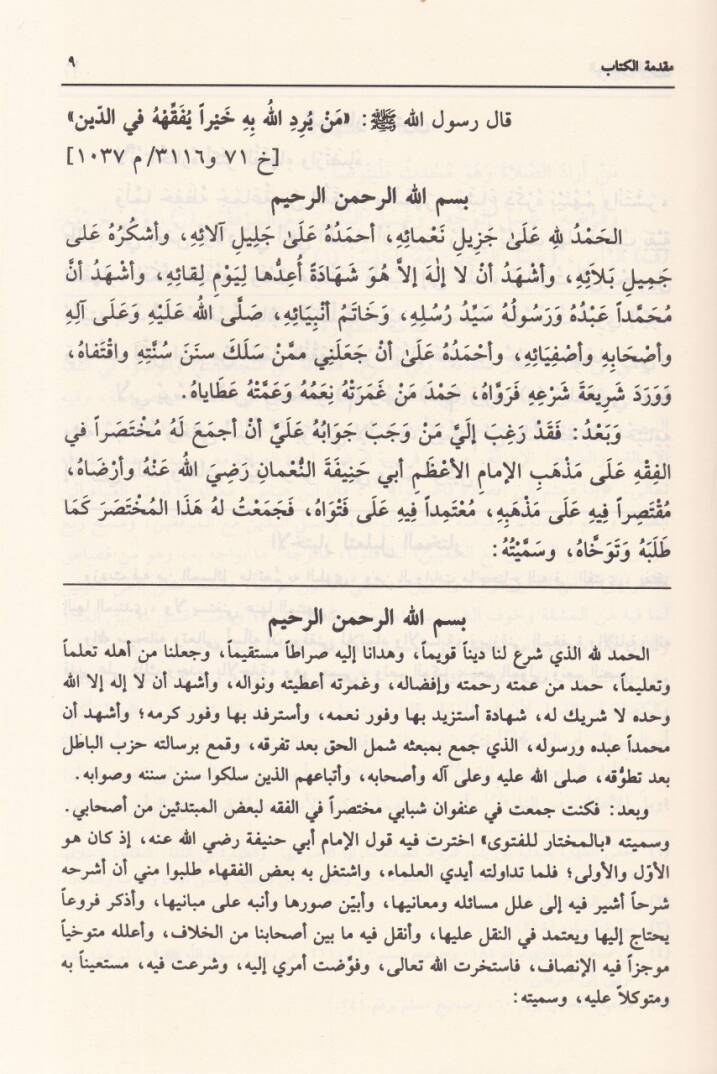 مقدمة الكتاب ٩
قال رسول الله ﷺ: «مَنْ يُرِدِ اللهُ بِهِ خَيْراً يُفَقِّهْهُ في الدّين»
[خ ٧١ و٣١١٦/ م ١٠٣٧]
بسم الله الرحمن الرحيم
الحَمْدُ لِلهِ عَلَىٰ جَزِيلِ نَعْمائِهِ، أحمَدُهُ عَلَىٰ جَلِيلِ آلائِهِ، وأشكُرُهُ عَلى
جَمِيلِ بَلائِهِ، وأشْهَدُ أنْ لا إلٰهَ إلاَّ هُوَ شَهَادَةً أُعِدُّها لِيَوْمِ لِقائِهِ، وأشْهَدُ أنَّ
مُحَمَّداً عَبْدُهُ وَرَسُولُهُ سَيِّدُ رُسُلِهِ، وَخَاتَمُ أنْبِيَائِهِ، صَلَّى اللهُ عَلَيْهِ وَعَلَى آلِهِ
وأصْحَابِهِ وأصْفِيَائِهِ، وأحْمَدُهُ عَلىٰ أنْ جَعَلَنِي ممَّنْ سَلَكَ سنَنَ سُنَّتِهِ واقْتَفاهُ،
وَوَرَدَ شَرِيعَةَ شَرْعِهِ فَرَوَّاهُ، حَمْدَ مَنْ غَمَرَتْهُ نِعَمُهُ وَعَمَّتْهُ عَطَاياهُ.
وَبَعْدُ: فَقَدْ رَغِبَ إلَيَّ مَنْ وَجَبَ جَوَابُهُ عَلَيَّ أنْ أجمَعَ لَهُ مُخْتَصَراً في
الفِقْهِ عَلَى مَذْهَبِ الإمامِ الأعْظَمِ أبي حَنِيفَةَ النُّعْمانِ رَضِيَ اللهُ عَنْهُ وأرْضَاهُ،
مُقْتَصِراً فِيهِ عَلَى مَذْهَبِهِ، مُعْتَمِداً فِيهِ عَلَى فَتْوَاهُ، فَجَمَعْتُ لهُ هَذَا المُخْتَصَرَ كَمَا
طَلَبَهُ وَتَوَخَّاهُ، وسَمَّيْتُهُ:
بسم الله الرحمن الرحيم
الحمد لله الذي شرع لنا ديناً قويماً، وهدانا إليه صراطاً مستقيماً، وجعلنا من أهله تعلماً
وتعليماً، حمد من عمته رحمته وإفضاله، وغمرته أعطيته ونواله، وأشهد أن لا إله إلا الله
وحده لا شريك له، شهادة أستزيد بها وفور نعمه، وأسترفد بها وفور كرمه؛ وأشهد أن
محمداً عبده ورسوله، الذي جمع بمبعثه شمل الحق بعد تفرقه، وقمع برسالته حزب الباطل
بعد تطوُّقه، صلى الله عليه وعلى آله وأصحابه، وأتباعهم الذين سلكوا سنن سنته وصوابه.
وبعد: فكنت جمعت في عنفوان شبابي مختصراً في الفقه لبعض المبتدئين من أصحابي.
وسميته «بالمختار للفتوى» اخترت فيه قول الإمام أبي حنيفة رضي الله عنه، إذ كان هو
الأوّل والأولى؛ فلما تداولته أيدي العلماء، واشتغل به بعض الفقهاء طلبوا مني أن أشرحه
شرحاً أشير فيه إلى علل مسائله ومعانيها، وأبيّن صورها وأنبه على مبانيها، وأذكر فروعاً
يحتاج إليها ويعتمد في النقل عليها، وأنقل فيه ما بين أصحابنا من الخلاف، وأعلله متوخياً
موجزاً فيه الإنصاف، فاستخرت الله تعالى، وفوّضت أمري إليه، وشرعت فيه، مستعيناً به
ومتوكلاً عليه، وسميته: